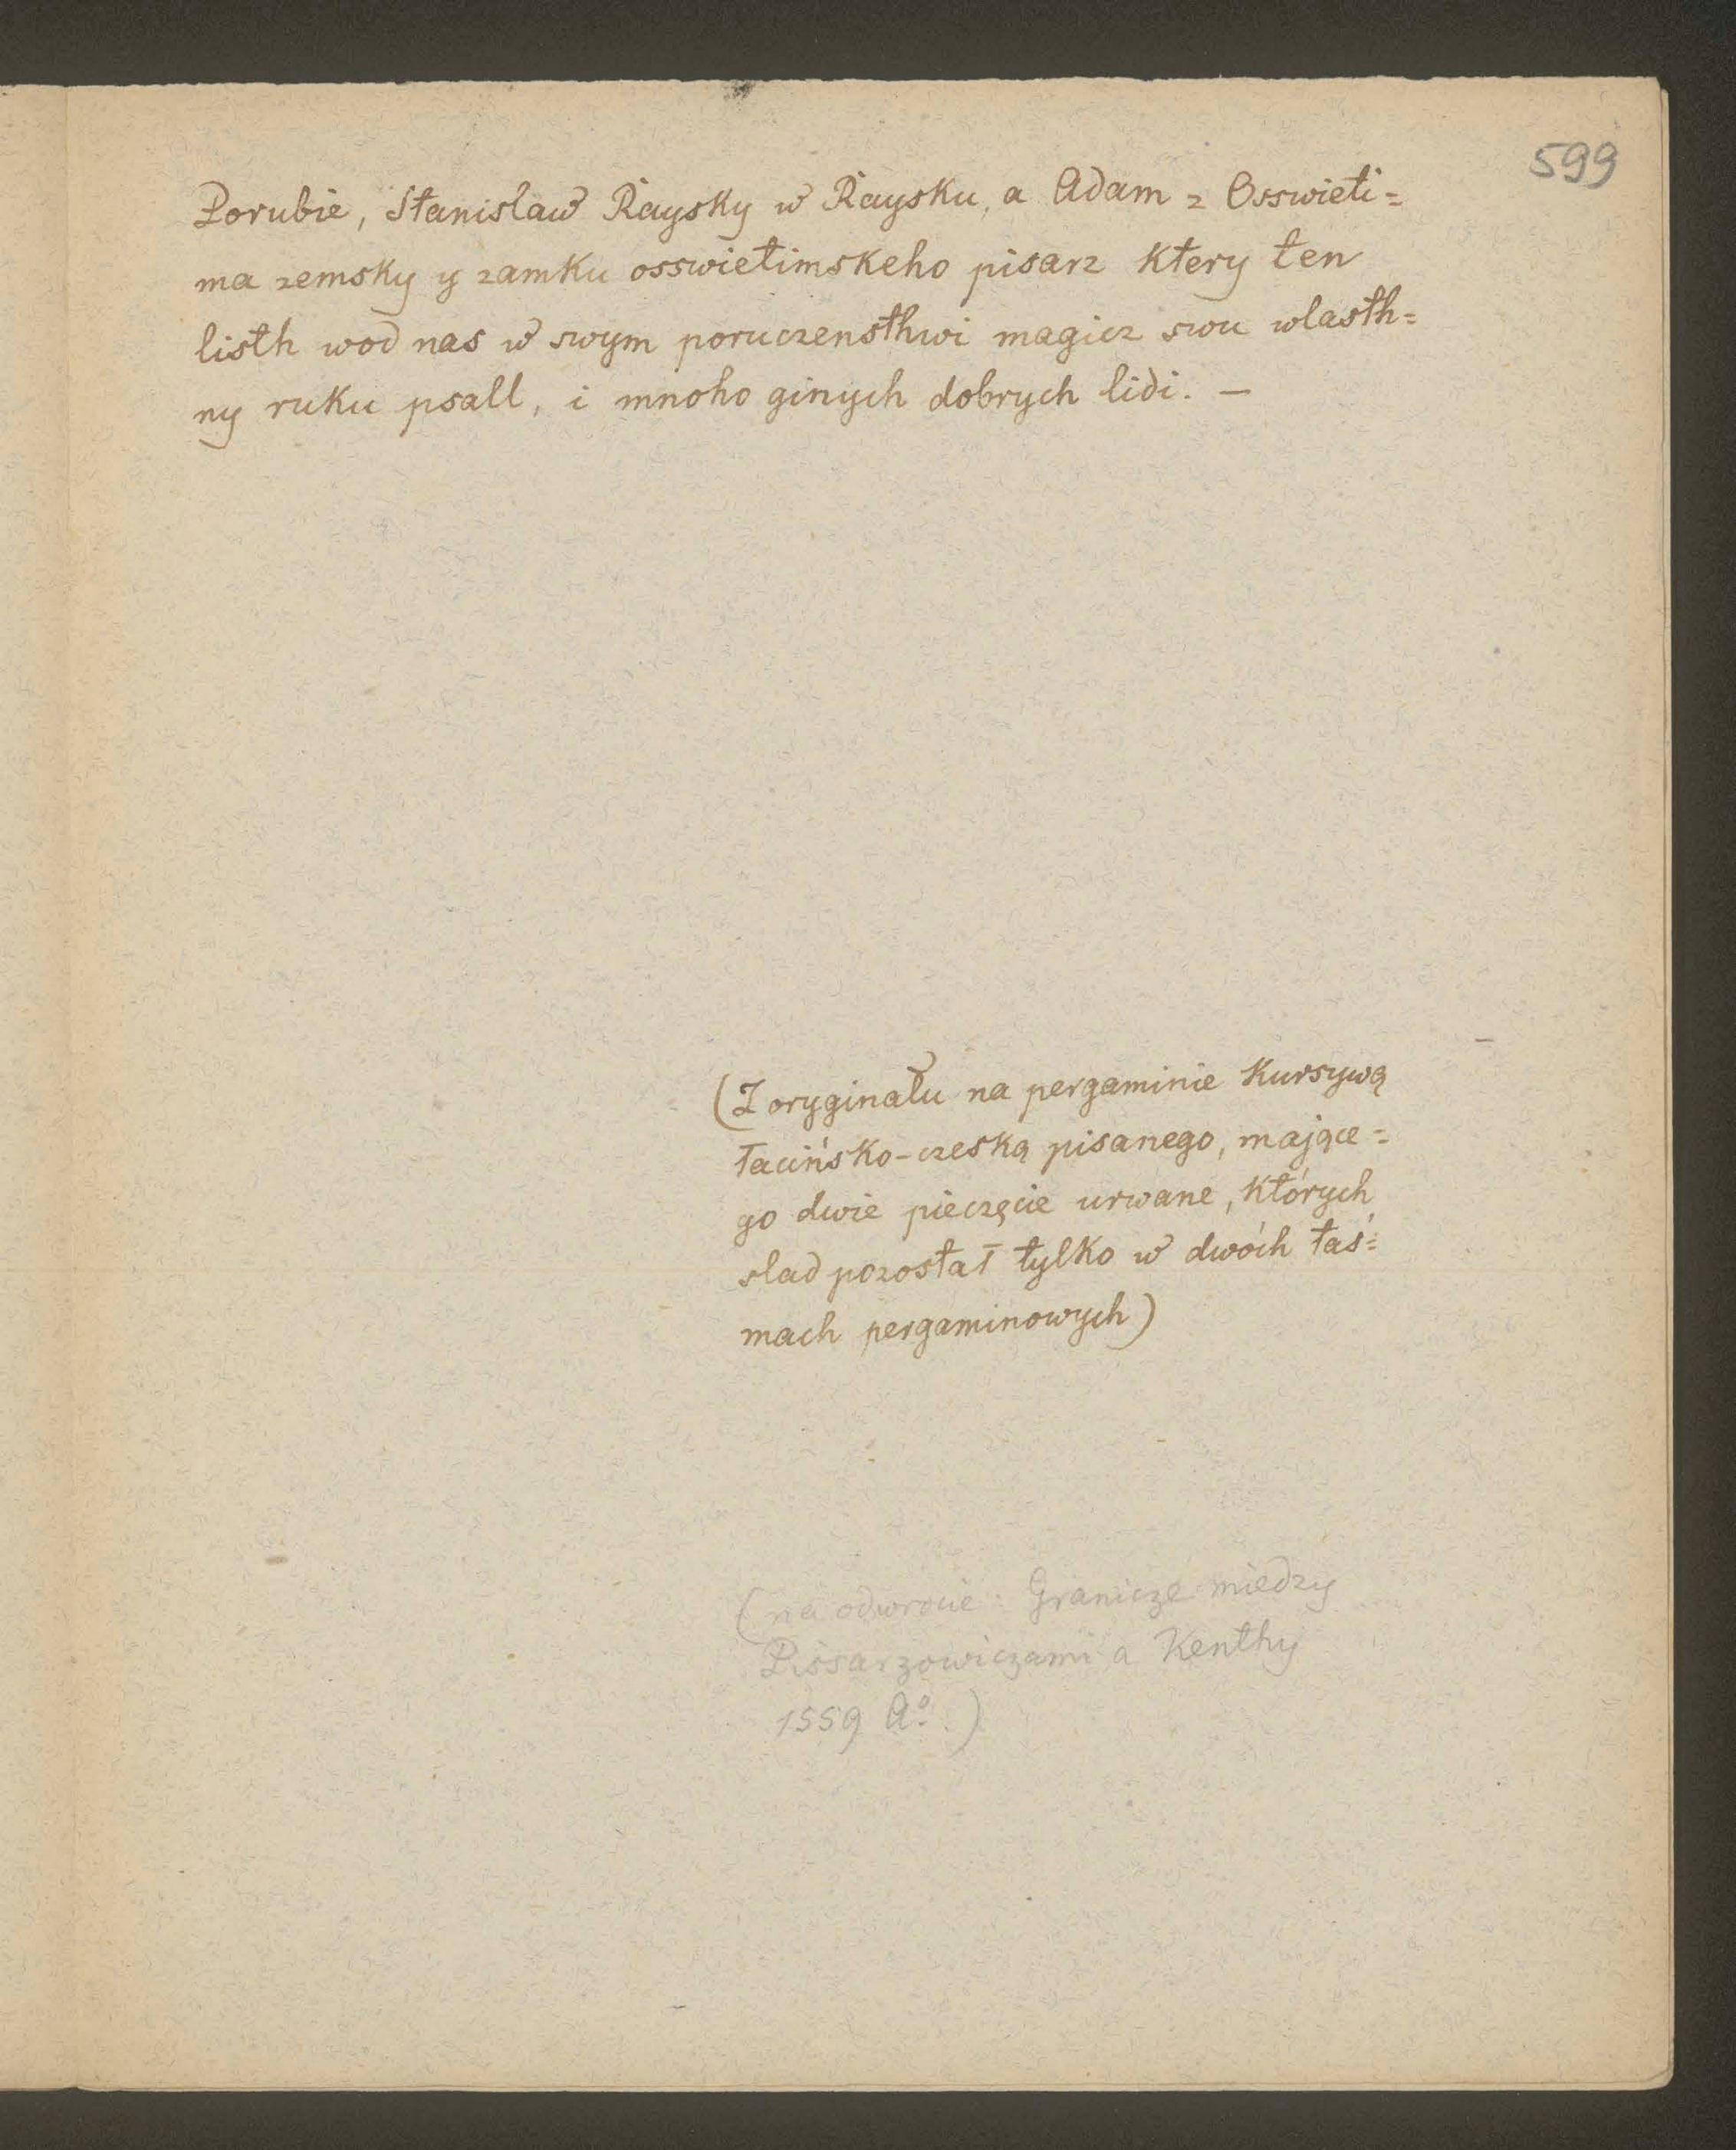 599
Porubie, Stanislaw Raysky w Raysku, a Adam z Osswieti=
ma zemsky y zamku osswietimskeho pisarz ktery ten
listh wod nas w swym poruczensthwi magicz swu wlasth=
ny ruku psall, i mnoho ginych dobrych lidi. —
(Z oryginału na pergaminie kursywą
łacińsko-czeską pisanego, mające=
go dwie pieczęcie urwane, których
slad pozostał tylko w dwóch taś=
mach pergaminowych)
(na odwrocie: Granicze miedzy
Pissarzowiczami a Kenthy
1559 Aº.)